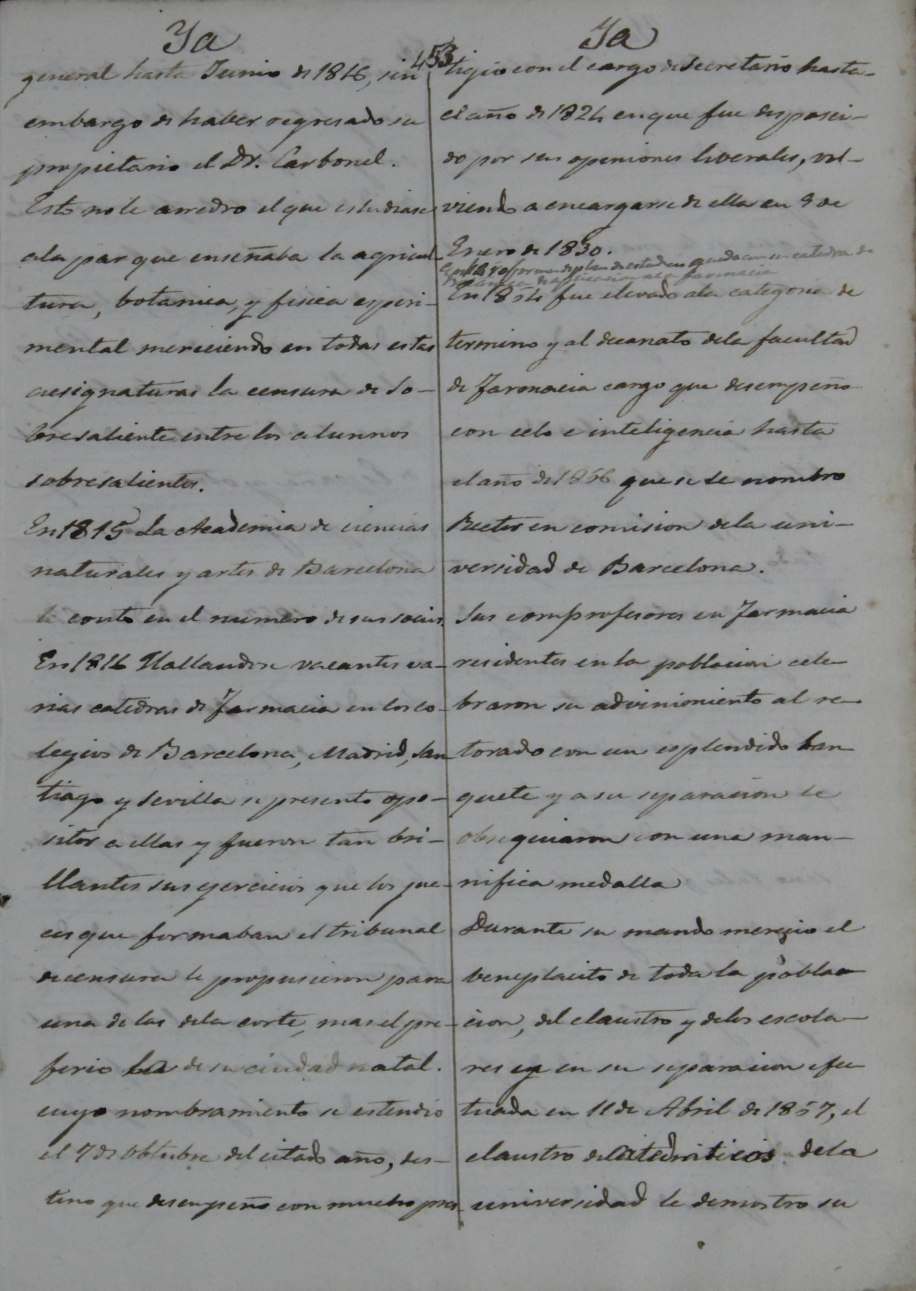 Ya
453
Ya
general hasta Junio de 1816, sin
embargo de haber regresado su
propietario el Dr. Carbonel.
Esto no le arredro el que estudiase
ala par que enseñaba la agricul
tura, botanica, y fisica esperi-
mental mereciendo en todas estas
asignaturas la censura de So-
bresaliente entre los alumnos
sobresalientes.
En 1815 La Academia de ciencias
naturales y artes de Barcelona
le conto en el numero de sus socios.
En 1816 Hallandose vacantes va-
rias catedras de farmacia en los co-
legios de Barcelona, Madrid, San
tiago y Sevilla se presento opo-
sitor a ellas y fueron tan bri-
llantes sus ejercicios que los jue-
ces que formaban el tribunal
de censura le propusieron para
una de las dela corte, mas el pre-
firio La de su ciudad natal.
cuyo nombramiento se estendio
el 7 de Obtubre del citado año, des-
tino que desempeño con mucho pres
tigio con el cargo de Secretario hasta
el año de 1824 en que fue desposei-
do por sus opiniones liverales, vol-
viendo a encargarse de ella en 3 de
Enero de 1830.
reforma de plan de estudios quedo con su catedra de
farmacia
En 1854 fue elevado ala categoria de
termino y al decanato dela facultad
de farmacia cargo que desempeño
con celo e inteligencia hasta
el año de 1856 que se le nombro
Rector en comision dela uni-
versidad de Barcelona.
Sus comprofesores en farmacia
residentes en la poblacion cele-
braron su advinimiento al re-
torado con un esplendido ban
quete y a su separacion le
obsequiaron con una man-
nifica medalla
Durante su mando merecio el
beneplacito de toda la pobla
cion, del claustro y delos escola-
res y en su separacion efec
tuada en 11 de Abril de 1857, el
claustro de Catedraticos dela
universidad le demostro su